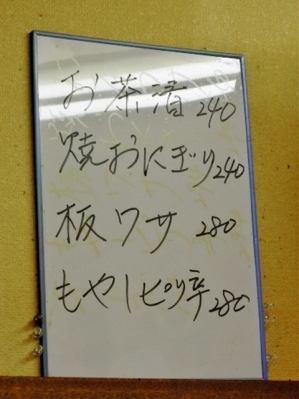 お茶漬 240
焼おにぎり 240
板ワサ 280
もやしピリ辛 280